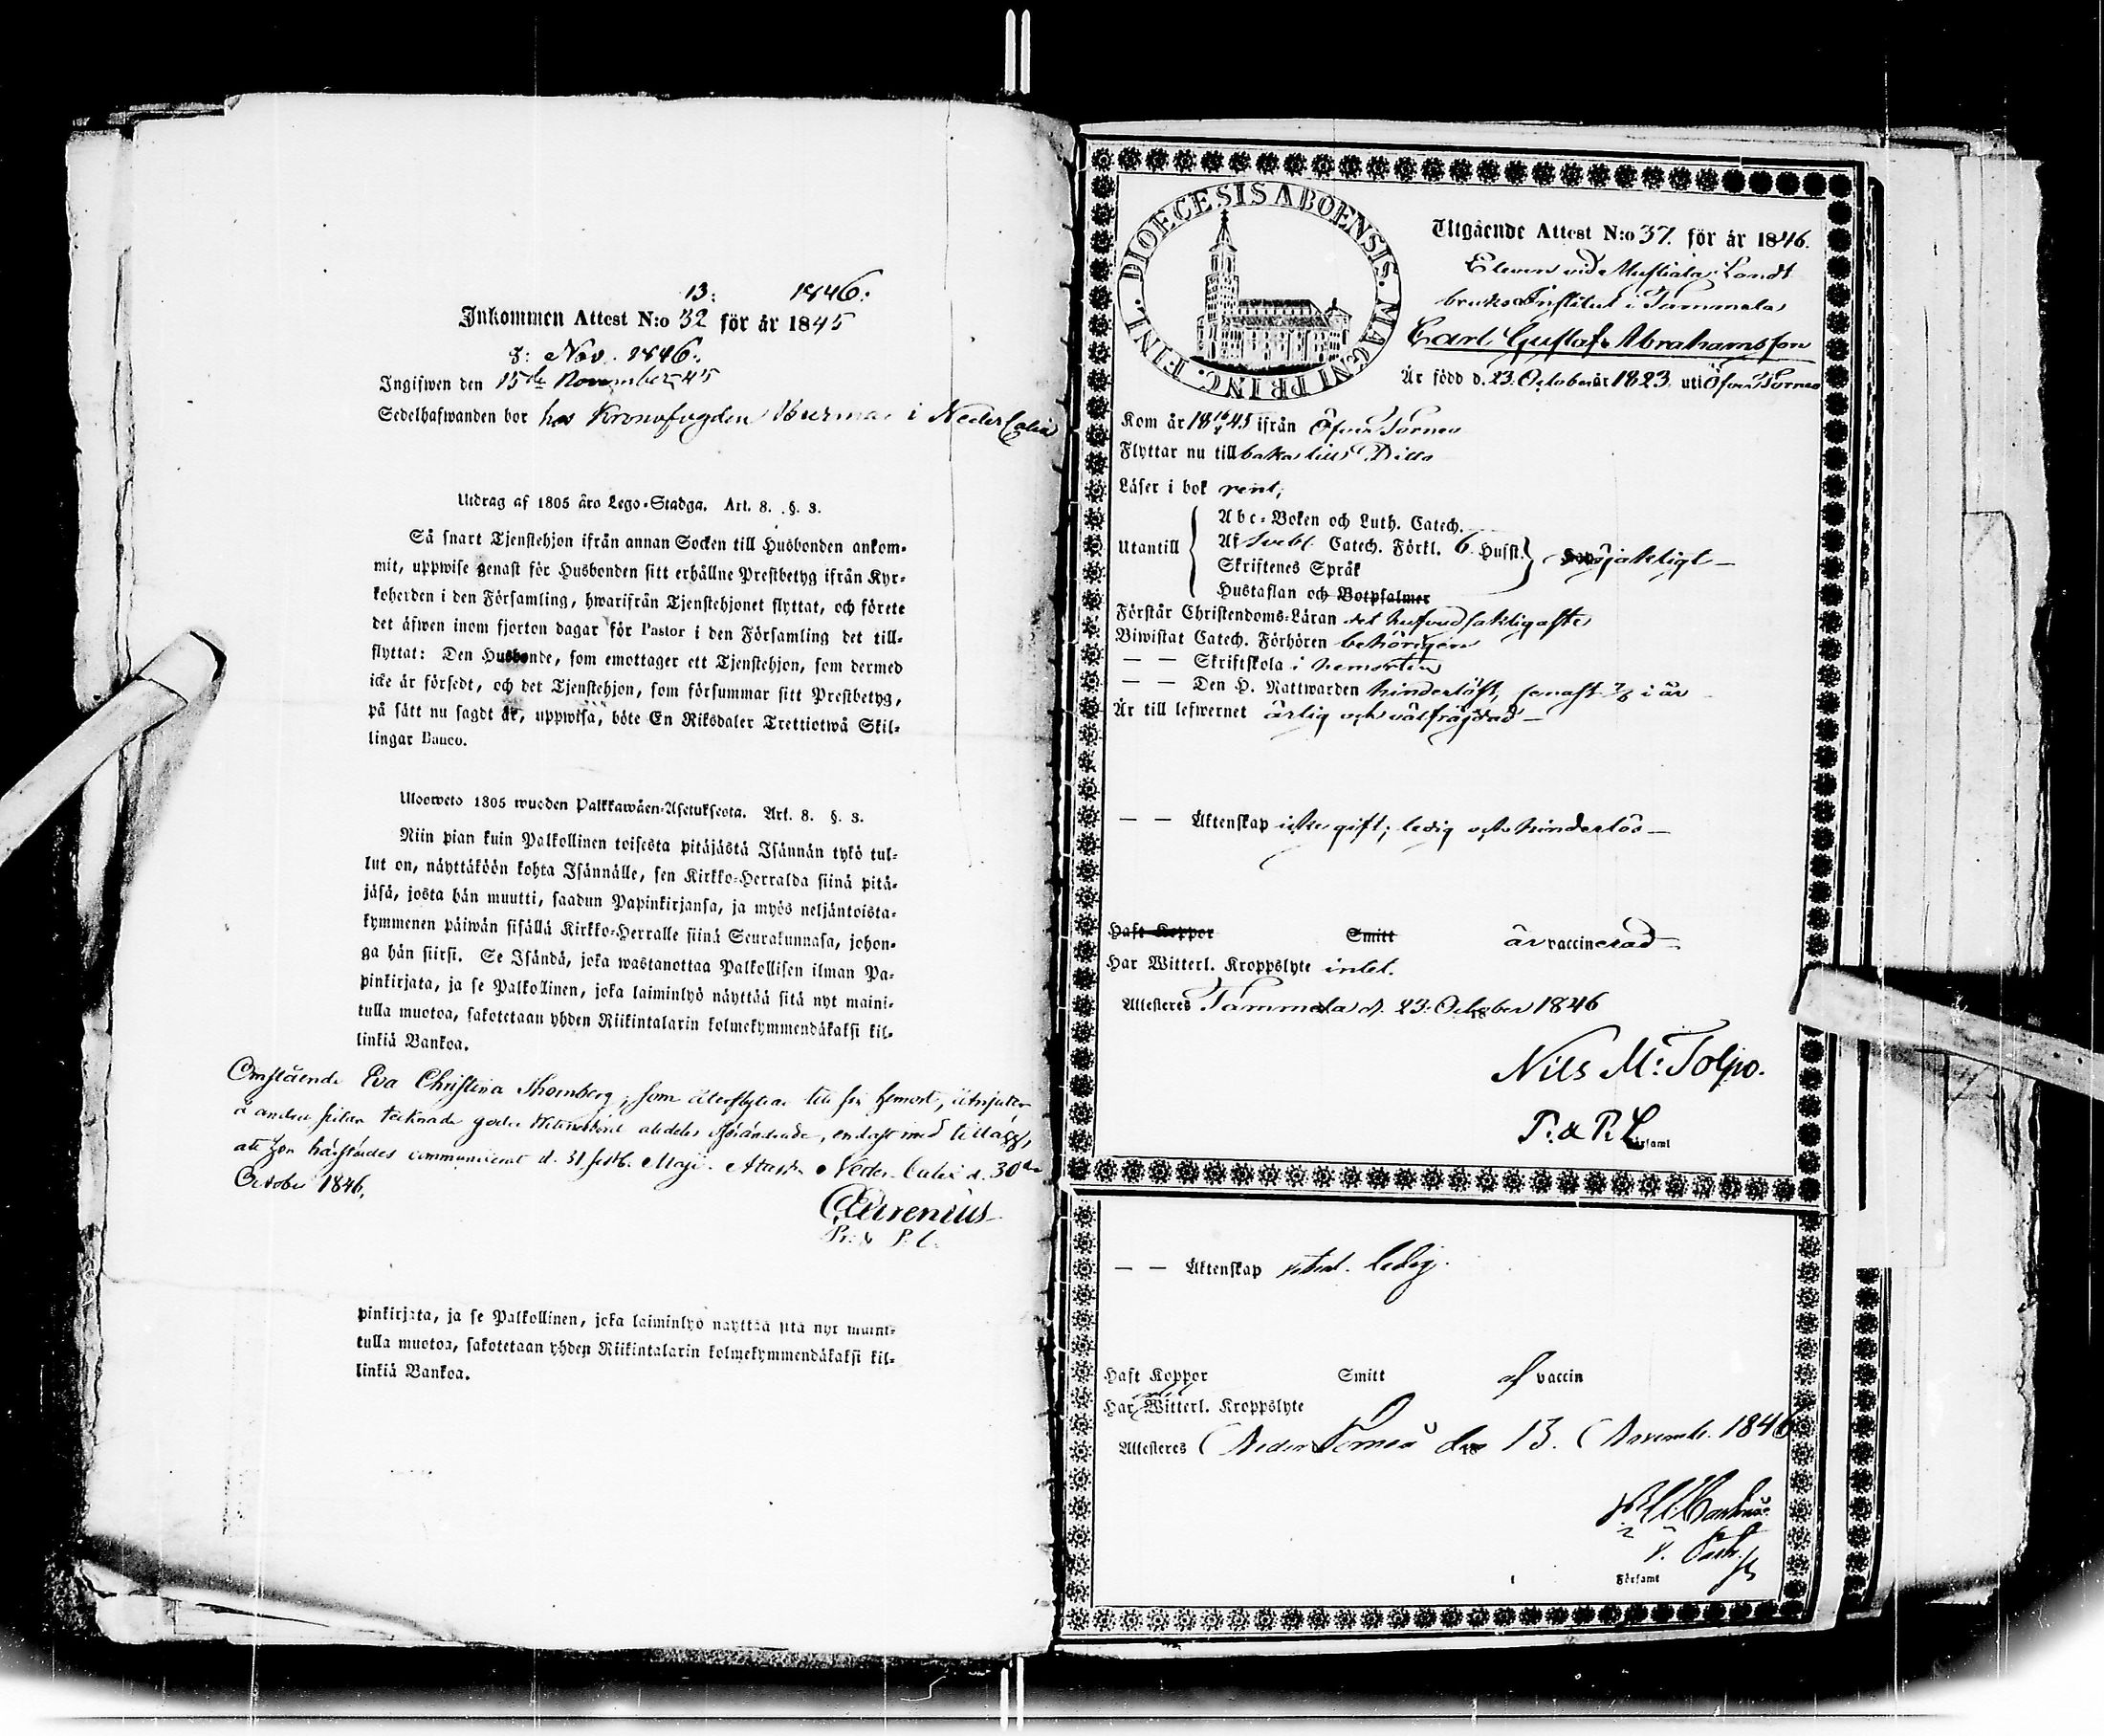 13: 1846:
Inkommen Attest N:o 32 för år 1845
8: Nov. 1846:
Ingifwen den 15de November 45
Sedelhafwanden bor hos Kronofogden Burman i Neder Calix
Utdrag af 1805 års Lego-Stadga. Art. 8. §. 3.
Så snart Tjenstehjon ifrån annan Socken till Husbonden ankom-
mit, uppwise genast för Husbonden sitt erhållne Prestbetyg ifrån Kyr-
koherden i den Församling, hwarifrån Tjenstehjonet flyttat, och förete
det äfwen inom fjorton dagar för Pastor i den Församling det till-
flyttat: Den Husbonde, som emottager ett Tjenstehjon, som dermed
icke är försedt, och det Tjenstehjon, som försummar sitt Prestbetyg,
på sätt nu sagdt är, uppwisa, böte En Riksdaler Trettiotwå Skil-
lingar Banco.
Ulosweto 1805 wuoden Palkkawäen-Asetuksesta. Art. 8. §. 3.
Niin pian kuin Palkollinen toisesta pitäjästä Isännän tykö tul-
lut on, näyttäköön kohta Isännälle, sen Kirkko-Herralda siinä pitä-
jäsä, josta hän muutti, saadun Papinkirjansa, ja myös neljäntoista-
kymmenen päiwän sisällä Kirkko-Herralle siinä Seurakunnasa, johon-
ga hän siirsi. Se Isändä, joka wastanottaa Palkollisen ilman Pa-
pinkirjata, ja se Palkollinen, joka laiminlyö näyttää sitä nyt maini-
tulla muotoa, sakotetaan yhden Riikintalarin kolmekymmendäkaksi kil-
linkiä Bankoa.
Omstående Eva Christina Thornberg, som återflyttar till sin hemort, åtnjuter
å andra sidan tecknade goda oförändrade, endast med tillägg,
att hon härstädes communicerat d. 31 sistl. Maji. Neder Calix d. 30de
October 1846,
Pr: & P. L.
pinkirjata, ja se Palkollinen, joka laiminlyö näyttää sitä nyt maini-
tulla muotoa, sakotetaan yhden Riikintalarin kolmekymmendäkaksi kil-
linkiä Bankoa.
DIOECESIS ABOENSIS. MAGNI PRINC. FINL.
Utgående Attest N:o 37. för år 1846.
Eleven vid Mustiala Landt
bruks Institut i Tammela
Carl Gustaf Abrahamsson
Är född d. 23. October år 1823 uti Öfver Torneå
Kom år 1845 ifrån Öfver Torneå
Flyttar nu tillbaka till Ditto
Läser i bok rent,
Utantill
Abc-Boken och Luth. Catech.
Af Svebl. Catech. Förkl. 6 Hufst.
Skriftenes Språk
Hustaflan och Botpsalmer
Förstår Christendoms-Läran det hufvudsakligaste
Biwistat Catech. Förhören behörigen
— — Skriftskola i hemorten
— — Den H. Nattwarden hinderlöst, senast i år
Är till lefwernet ärlig och välfrägdad —
— — Äktenskap icke gift; ledig och hinderlös —
Haft Koppor Smitt är vaccinerad —
Har Witterl. Kroppslyte intet.
Attesteras Tammela d. 23: October 1846
Nils M: Tolpo.
P: & P: L
Församl
— — Äktenskap ledig.
Haft Koppor Smitt af vaccin
Har Witterl. Kroppslyte
Attesteras Neder Torneå den 13. November 1846
Församl